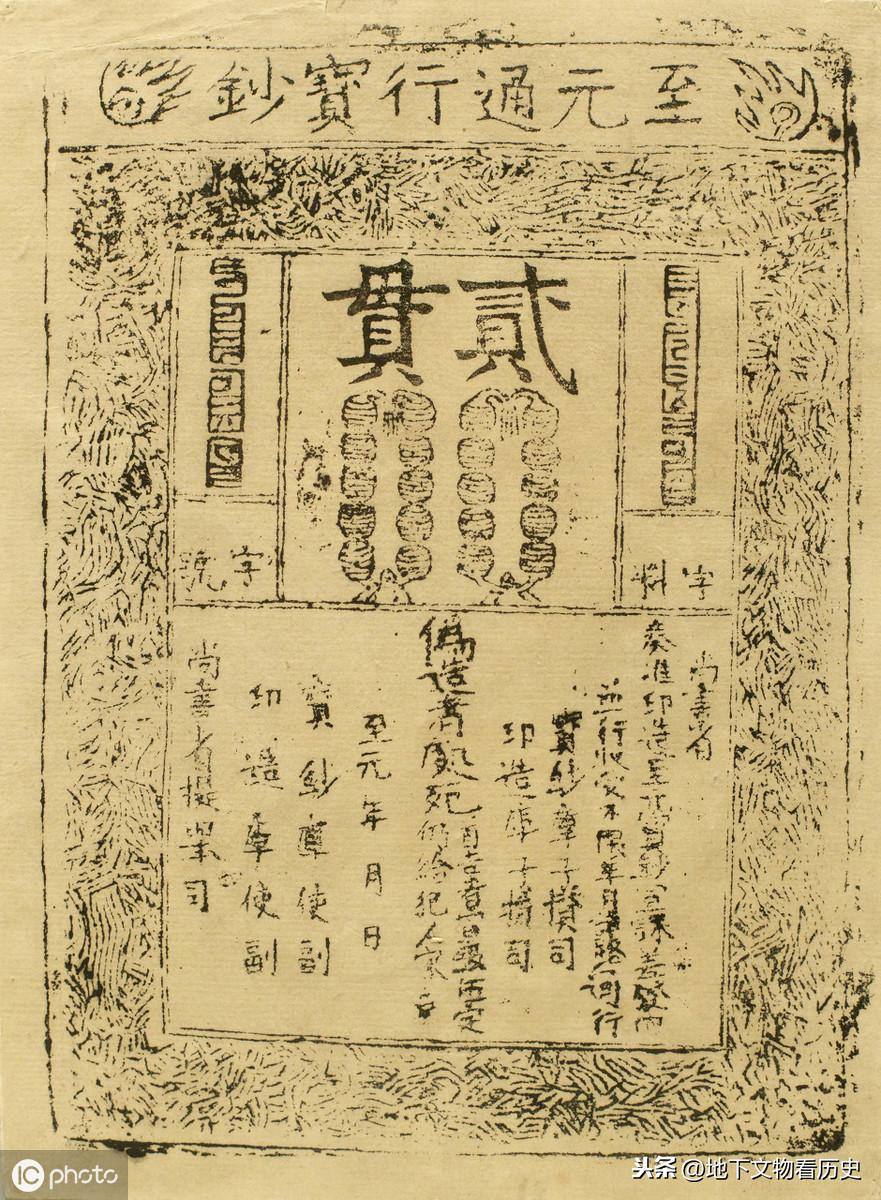 至元通行寶鈔
貳貫
字料
字號
尚書省
奏准印造至元寶鈔宣課差發內
並行收受不限年月諸路通行
寶鈔庫子攢司
印造庫子攢司
偽造者處死
首告者賞銀五定
仍給犯人家產
至元 年 月 日
寶鈔庫使副
印造庫使副
尚書省提舉司
iC photo
头条 @地下文物看历史